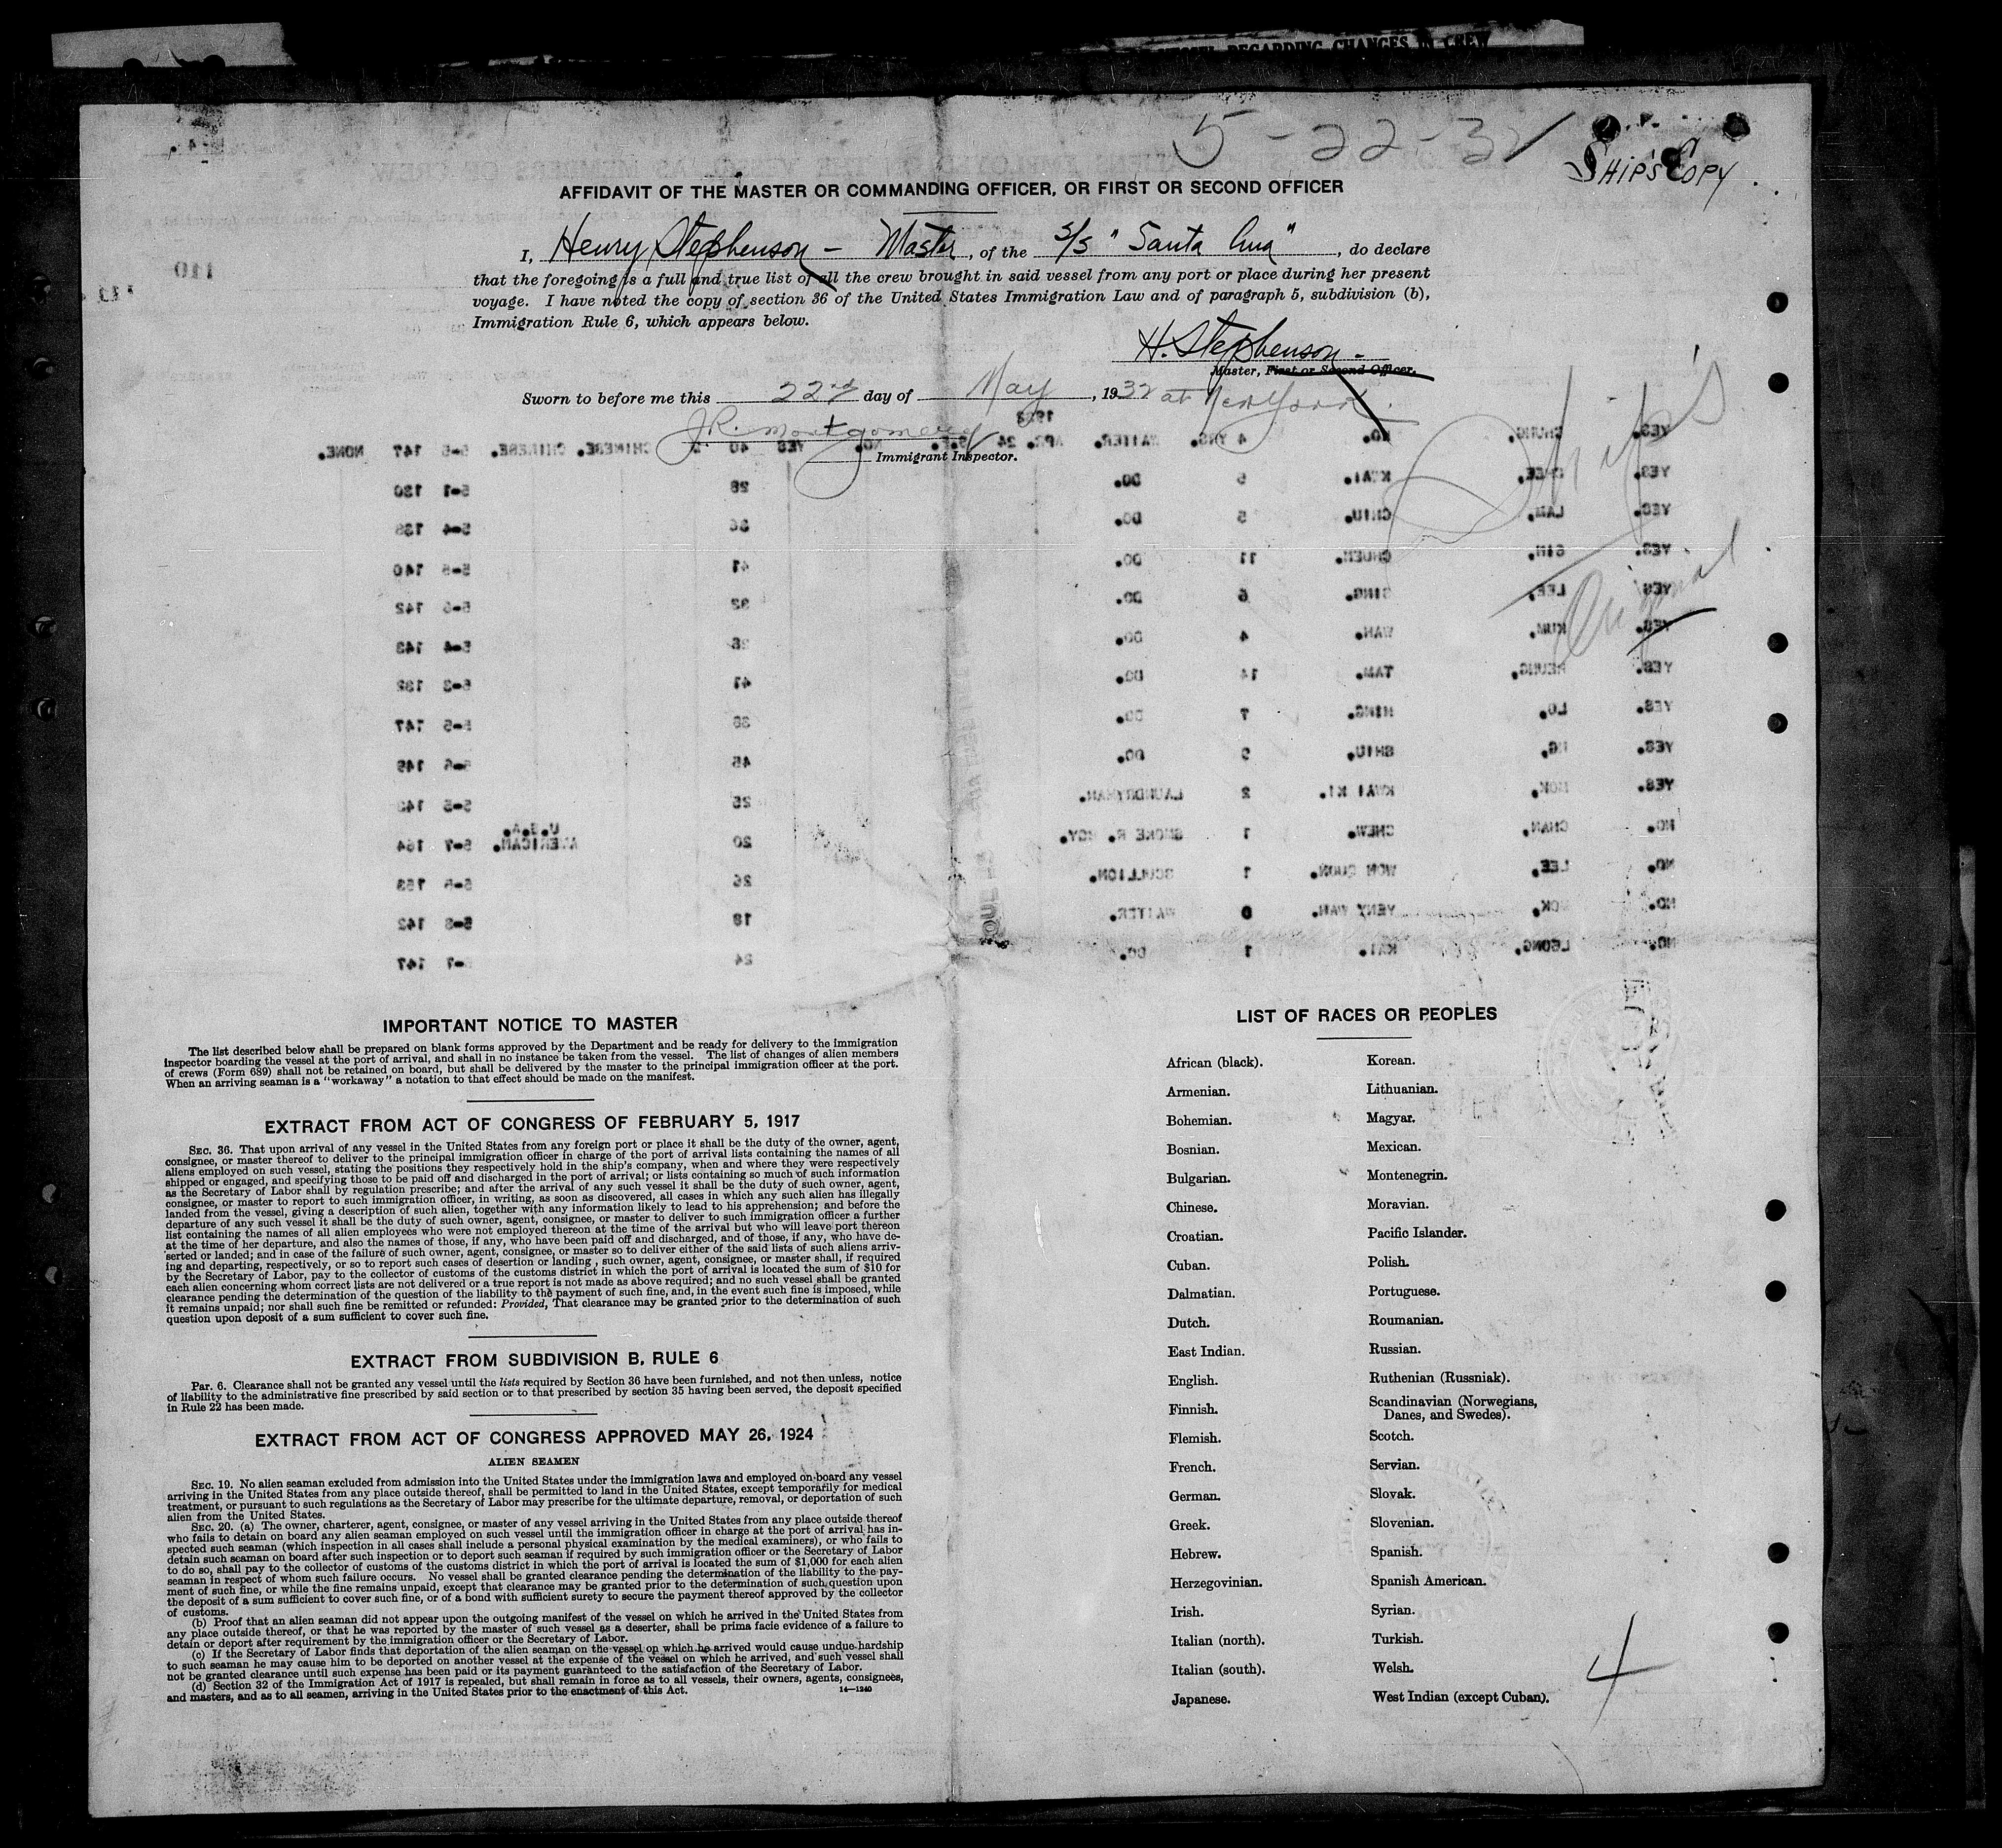 REGARDING CHANGES IN CREW
5-22-32
SHIP'S COPY
AFFIDAVIT OF THE MASTER OR COMMANDING OFFICER, OR FIRST OR SECOND OFFICER
I, Henry Stephenson – Master, of the S/S "Santa Ana", do declare
that the foregoing is a full and true list of all the crew brought in said vessel from any port or place during her present
voyage. I have noted the copy of section 36 of the United States Immigration Law and of paragraph 5, subdivision (b),
Immigration Rule 6, which appears below.
H. Stephenson –
Master, First or Second Officer.
Sworn to before me this 22nd day of May, 1932 at New York.
J.R. Montgomery
Immigrant Inspector.
Ship's
Original
IMPORTANT NOTICE TO MASTER
The list described below shall be prepared on blank forms approved by the Department and be ready for delivery to the immigration
inspector boarding the vessel at the port of arrival, and shall in no instance be taken from the vessel. The list of changes of alien members
of crews (Form 689) shall not be retained on board, but shall be delivered by the master to the principal immigration officer at the port.
When an arriving seaman is a "workaway" a notation to that effect should be made on the manifest.
EXTRACT FROM ACT OF CONGRESS OF FEBRUARY 5, 1917
SEC. 36. That upon arrival of any vessel in the United States from any foreign port or place it shall be the duty of the owner, agent,
consignee, or master thereof to deliver to the principal immigration officer in charge of the port of arrival lists containing the names of all
aliens employed on such vessel, stating the positions they respectively hold in the ship's company, when and where they were respectively
shipped or engaged, and specifying those to be paid off and discharged in the port of arrival; or lists containing so much of such information
as the Secretary of Labor shall by regulation prescribe; and after the arrival of any such vessel it shall be the duty of such owner, agent,
consignee, or master to report to such immigration officer, in writing, as soon as discovered, all cases in which any such alien has illegally
landed from the vessel, giving a description of such alien, together with any information likely to lead to his apprehension; and before the
departure of any such vessel it shall be the duty of such owner, agent, consignee, or master to deliver to such immigration officer a further
list containing the names of all alien employees who were not employed thereon at the time of the arrival but who will leave port thereon
at the time of her departure, and also the names of those, if any, who have been paid off and discharged, and of those, if any, who have de-
serted or landed; and in case of the failure of such owner, agent, consignee, or master so to deliver either of the said lists of such aliens arriv-
ing and departing, respectively, or so to report such cases of desertion or landing, such owner, agent, consignee, or master shall, if required
by the Secretary of Labor, pay to the collector of customs of the customs district in which the port of arrival is located the sum of $10 for
each alien concerning whom correct lists are not delivered or a true report is not made as above required; and no such vessel shall be granted
clearance pending the determination of the question of the liability to the payment of such fine, and, in the event such fine is imposed, while
it remains unpaid; nor shall such fine be remitted or refunded: Provided, That clearance may be granted prior to the determination of such
question upon deposit of a sum sufficient to cover such fine.
EXTRACT FROM SUBDIVISION B, RULE 6
Par. 6. Clearance shall not be granted any vessel until the lists required by Section 36 have been furnished, and not then unless, notice
of liability to the administrative fine prescribed by said section or to that prescribed by section 35 having been served, the deposit specified
in Rule 22 has been made.
EXTRACT FROM ACT OF CONGRESS APPROVED MAY 26, 1924
ALIEN SEAMEN
SEC. 19. No alien seaman excluded from admission into the United States under the immigration laws and employed on board any vessel
arriving in the United States from any place outside thereof, shall be permitted to land in the United States, except temporarily for medical
treatment, or pursuant to such regulations as the Secretary of Labor may prescribe for the ultimate departure, removal, or deportation of such
alien from the United States.
SEC. 20. (a) The owner, charterer, agent, consignee, or master of any vessel arriving in the United States from any place outside thereof
who fails to detain on board any alien seaman employed on such vessel until the immigration officer in charge at the port of arrival has in-
spected such seaman (which inspection in all cases shall include a personal physical examination by the medical examiners), or who fails to
detain such seaman on board after such inspection or to deport such seaman if required by such immigration officer or the Secretary of Labor
to do so, shall pay to the collector of customs of the customs district in which the port of arrival is located the sum of $1,000 for each alien
seaman in respect of whom such failure occurs. No vessel shall be granted clearance pending the determination of the liability to the pay-
ment of such fine, or while the fine remains unpaid, except that clearance may be granted prior to the determination of such question upon
the deposit of a sum sufficient to cover such fine, or of a bond with sufficient surety to secure the payment thereof approved by the collector
of customs.
(b) Proof that an alien seaman did not appear upon the outgoing manifest of the vessel on which he arrived in the United States from
any place outside thereof, or that he was reported by the master of such vessel as a deserter, shall be prima facie evidence of a failure to
detain or deport after requirement by the immigration officer or the Secretary of Labor.
(c) If the Secretary of Labor finds that deportation of the alien seaman on the vessel on which he arrived would cause undue hardship
to such seaman he may cause him to be deported on another vessel at the expense of the vessel on which he arrived, and such vessel shall
not be granted clearance until such expense has been paid or its payment guaranteed to the satisfaction of the Secretary of Labor.
(d) Section 32 of the Immigration Act of 1917 is repealed, but shall remain in force as to all vessels, their owners, agents, consignees,
and masters, and as to all seamen, arriving in the United States prior to the enactment of this Act.
14—1240
LIST OF RACES OR PEOPLES
African (black).
Armenian.
Bohemian.
Bosnian.
Bulgarian.
Chinese.
Croatian.
Cuban.
Dalmatian.
Dutch.
East Indian.
English.
Finnish.
Flemish.
French.
German.
Greek.
Hebrew.
Herzegovinian.
Irish.
Italian (north).
Italian (south).
Japanese.
Korean.
Lithuanian.
Magyar.
Mexican.
Montenegrin.
Moravian.
Pacific Islander.
Polish.
Portuguese.
Roumanian.
Russian.
Ruthenian (Russniak).
Scandinavian (Norwegians,
Danes, and Swedes).
Scotch.
Servian.
Slovak.
Slovenian.
Spanish.
Spanish American.
Syrian.
Turkish.
Welsh.
West Indian (except Cuban).
4